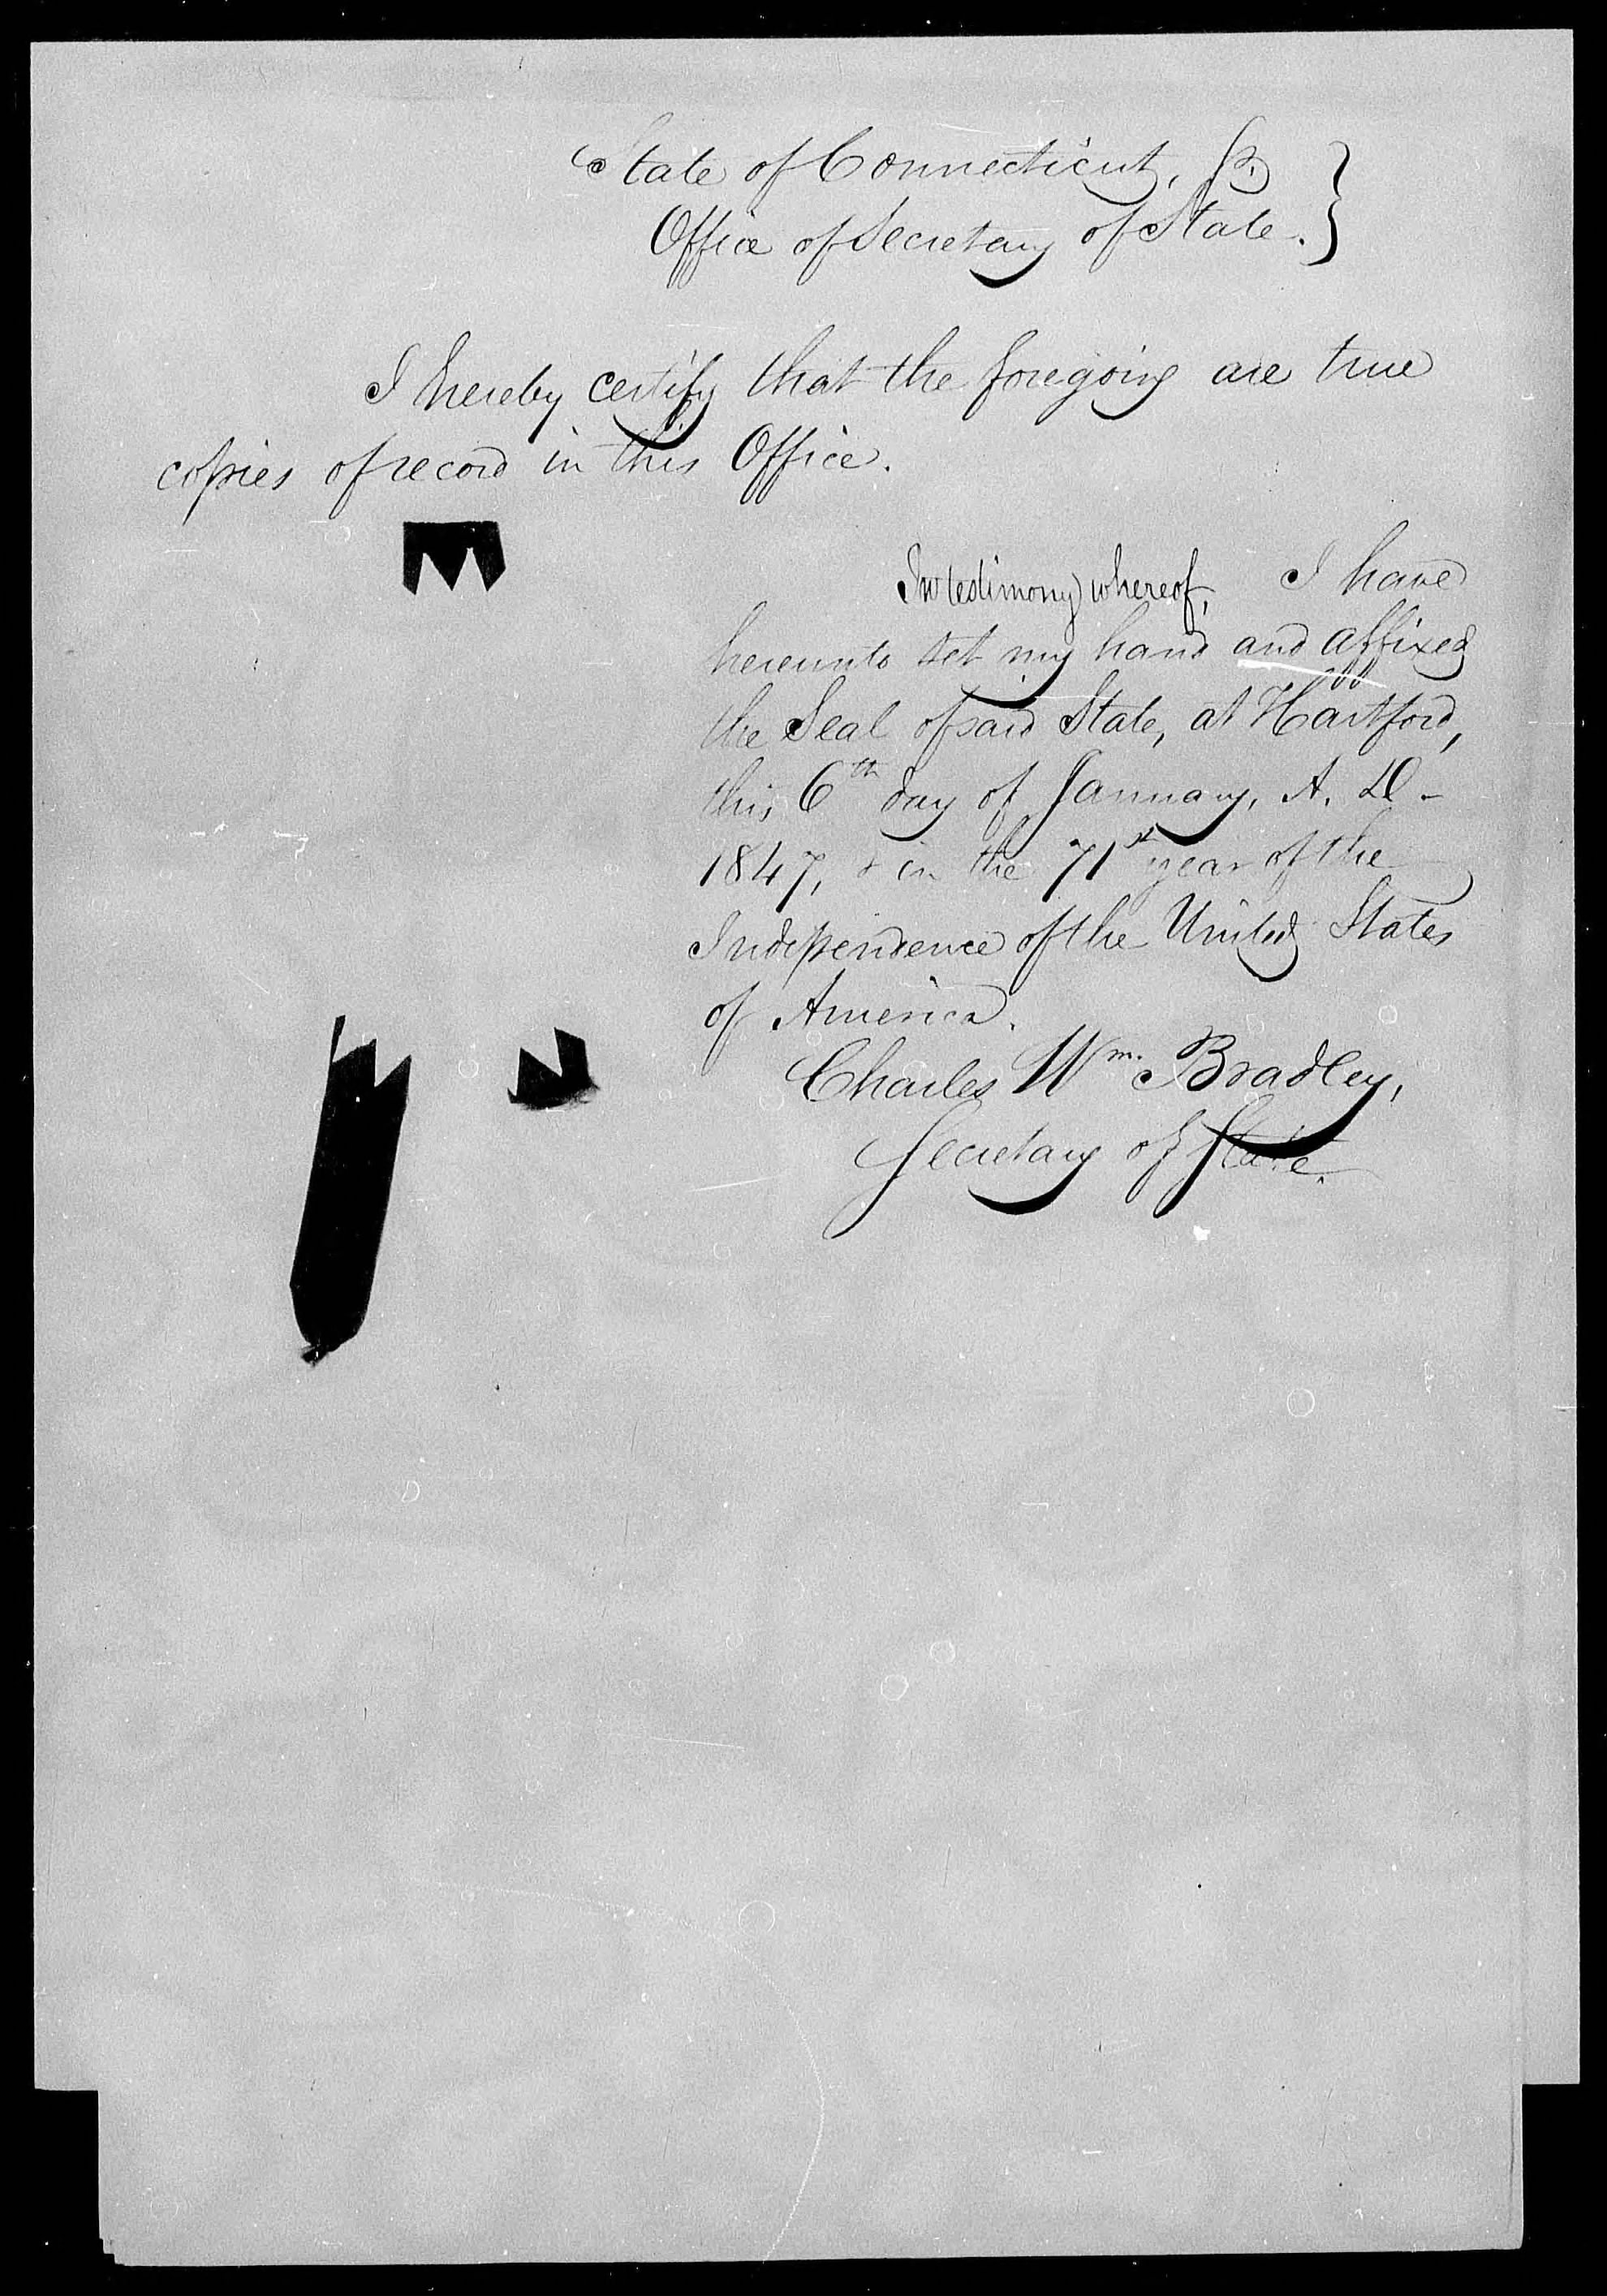 State of Connecticut, ss. }
Office of Secretary of State. }
I hereby certify that the foregoing are true
copies of record in this Office.
In testimony whereof, I have
hereunto set my hand and affixed
the Seal of said State, at Hartford,
this 6th day of January, A. D -
1847, & in the 71st year of the
Independence of the United States
of America.
Charles Wm. Bradley,
Secretary of State.